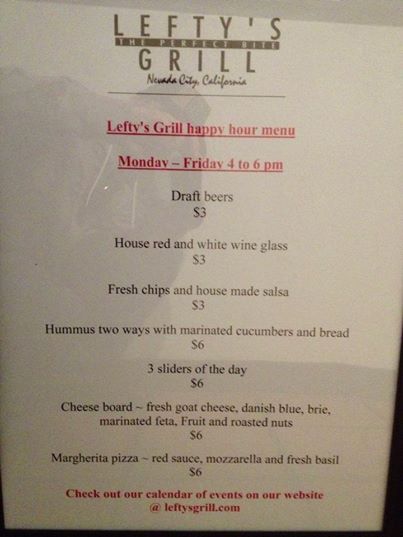 LEFTY'S
THE PERFECT BITE
GRILL
Nevada City, California
Lefty's Grill happy hour menu
Monday – Friday 4 to 6 pm
Draft beers
$3
House red and white wine glass
$3
Fresh chips and house made salsa
$3
Hummus two ways with marinated cucumbers and bread
$6
3 sliders of the day
$6
Cheese board ~ fresh goat cheese, danish blue, brie,
marinated feta, Fruit and roasted nuts
$6
Margherita pizza ~ red sauce, mozzarella and fresh basil
$6
Check out our calendar of events on our website
@ leftysgrill.com